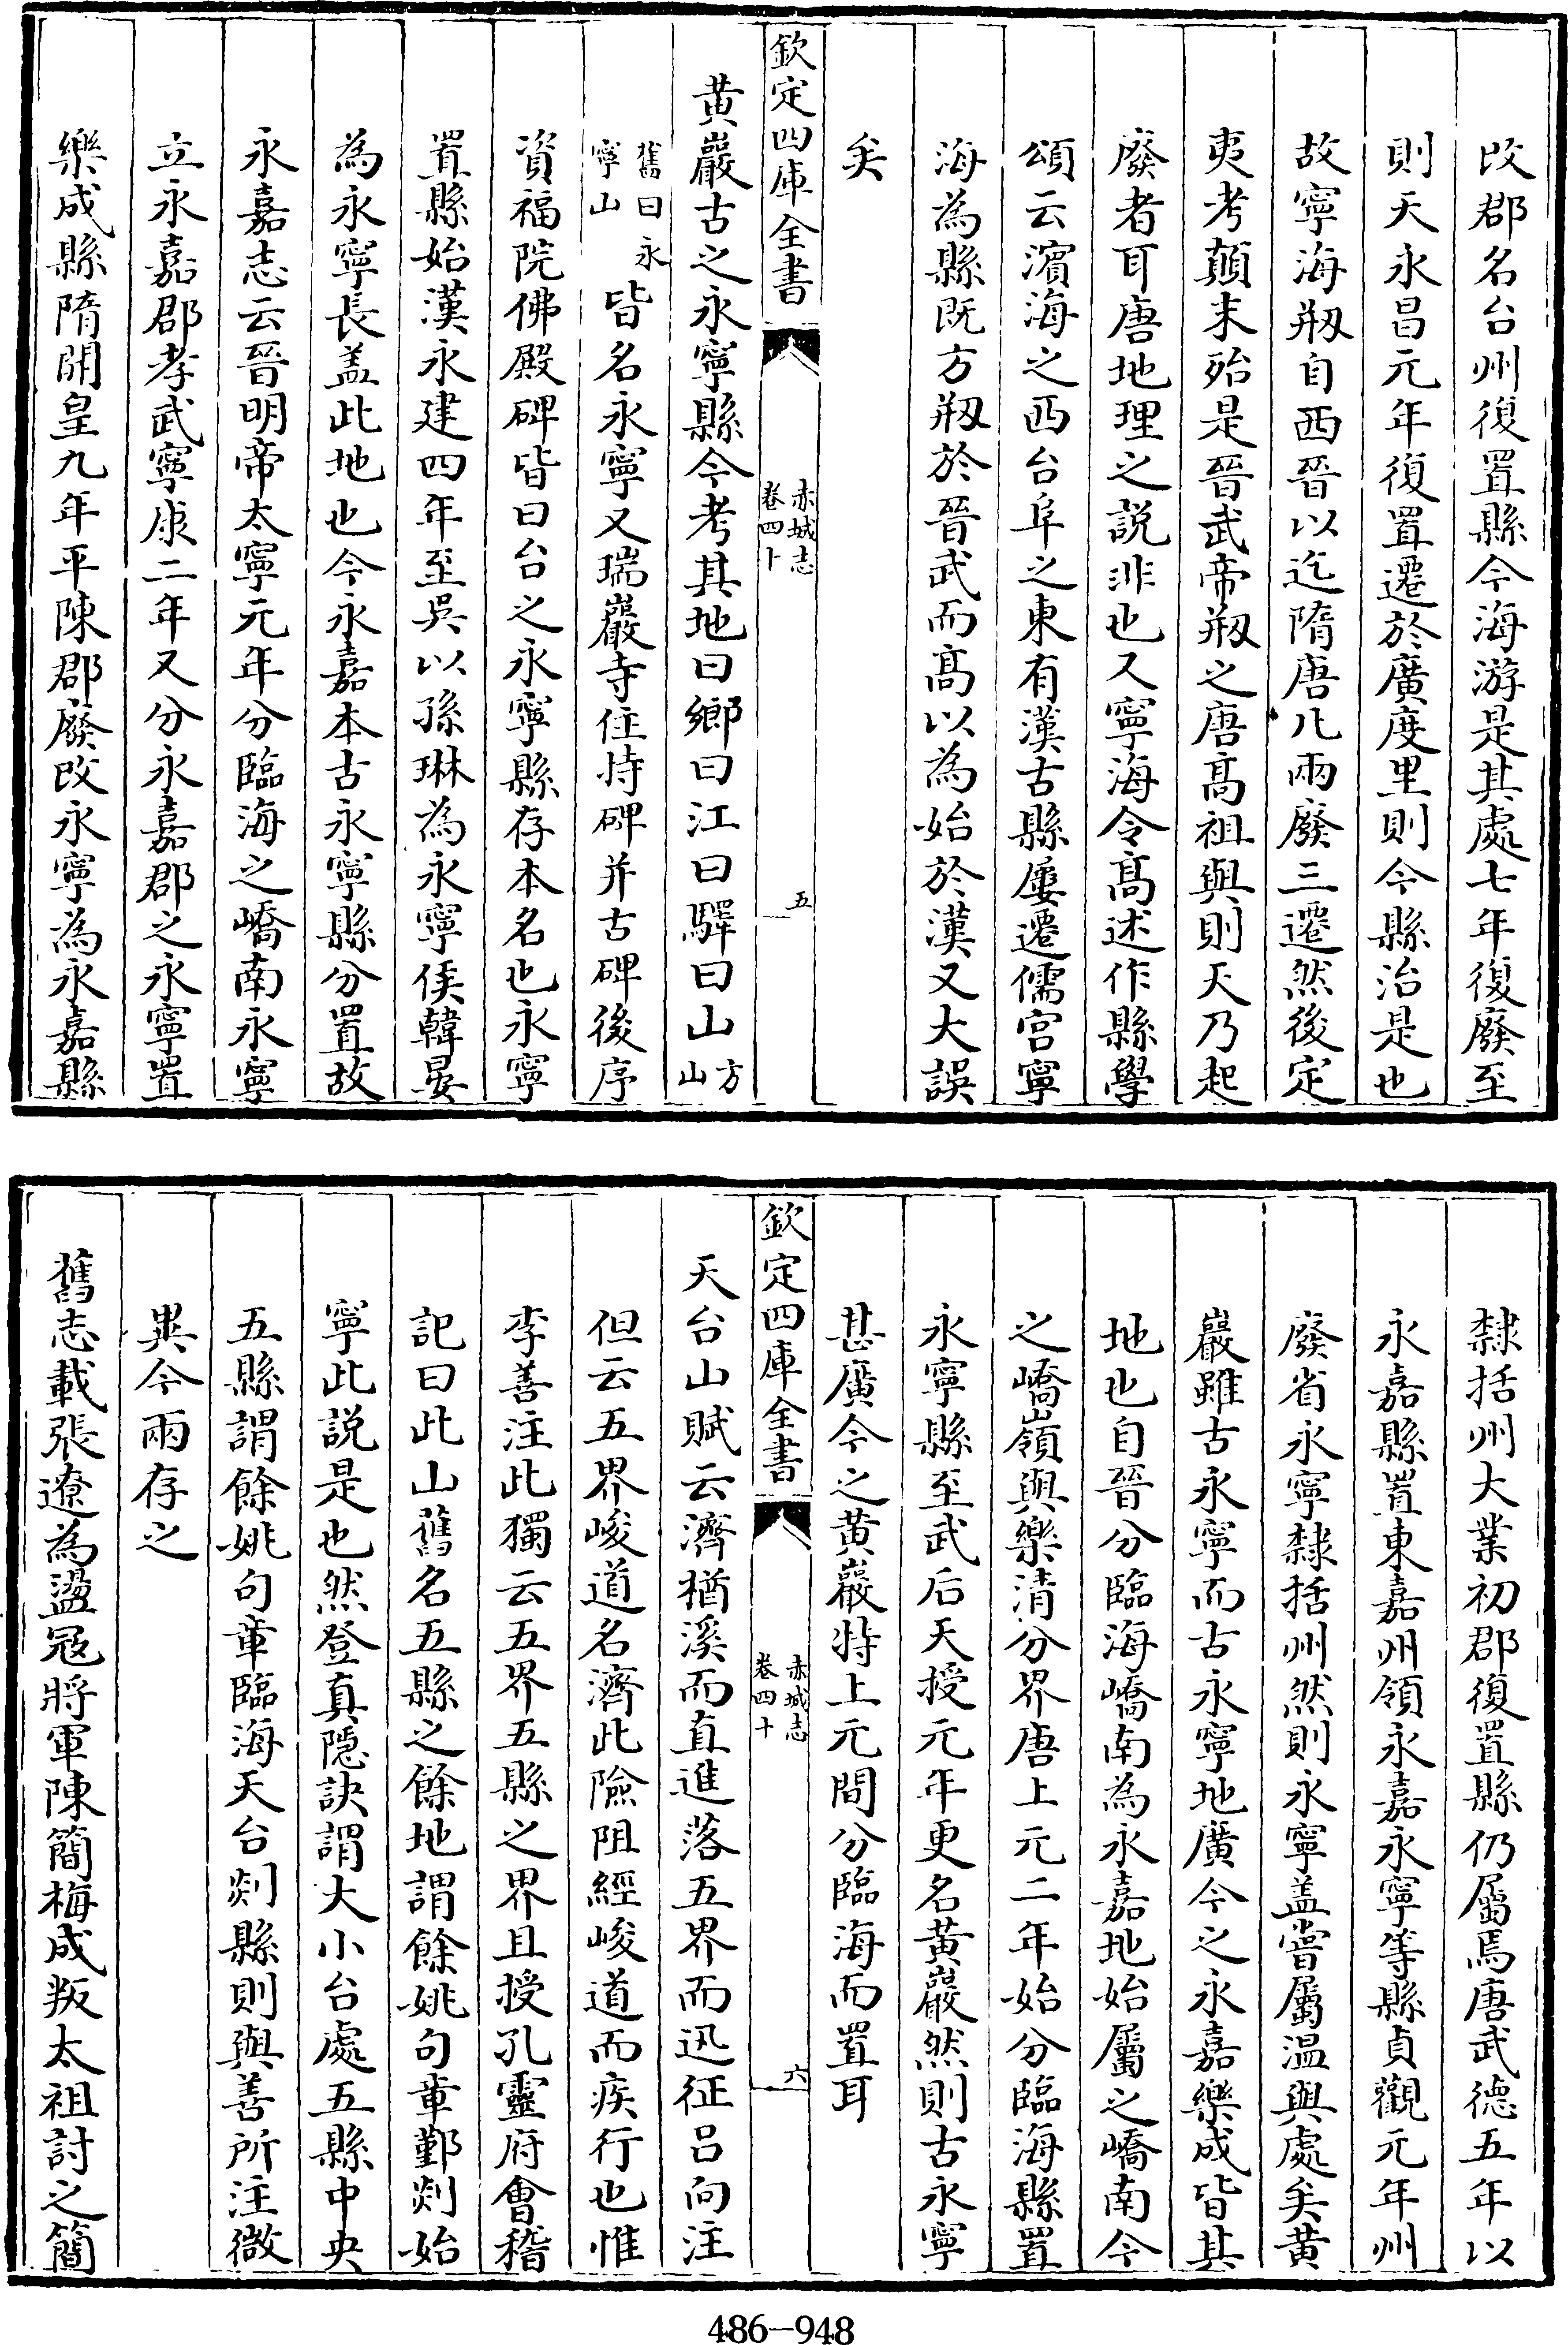 改郡名台州復置縣今海游是其處七年復廢至
則天永昌元年復置遷於廣度里則今縣治是也
故寧海剏自西晉以迄隋唐凡兩廢三遷然後定
夷考顛末殆是晉武帝剏之唐高祖與則天乃起
廢者耳唐地理之説非也又寧海令高述作縣學
頌云濱海之西台阜之東有漢古縣屢遷儒宫寧
海為縣既方剏於晉武而高以為始於漢又大誤
矣
欽定四庫全書
赤城志
卷四十
五
黄巖古之永寧縣今考其地曰鄉曰江曰驛曰山方山
舊曰永寧山皆名永寧又瑞巖寺住持碑并古碑後序
資福院佛殿碑皆曰台之永寧縣存本名也永寧
置縣始漢永建四年至吳以孫琳為永寧侯韓晏
為永寧長盖此地也今永嘉本古永寧縣分置故
永嘉志云晉明帝太寧元年分臨海之嶠南永寧
立永嘉郡孝武寧康二年又分永嘉郡之永寧置
樂成縣隋開皇九年平陳郡廢改永寧為永嘉縣
隸括州大業初郡復置縣仍屬焉唐武德五年以
永嘉縣置東嘉州領永嘉永寧等縣貞觀元年州
廢省永寧隸括州然則永寧盖嘗屬温與處矣黄
巖雖古永寧而古永寧地廣今之永嘉樂成皆其
地也自晉分臨海嶠南為永嘉地始屬之嶠南今
之嶠嶺與樂清分界唐上元二年始分臨海縣置
永寧縣至武后天授元年更名黄巖然則古永寧
甚廣今之黄巖特上元間分臨海而置耳
欽定四庫全書
赤城志
卷四十
六
天台山賦云濟楢溪而直進落五界而迅征吕向注
但云五界峻道名濟此險阻經峻道而疾行也惟
李善注此獨云五界五縣之界且授孔靈府會稽
記曰此山舊名五縣之餘地謂餘姚句章鄞剡始
寧此説是也然登真隠訣謂大小台處五縣中央
五縣謂餘姚句章臨海天台剡縣則與善所注微
異今兩存之
舊志載張遼為盪冦將軍陳簡梅成叛太祖討之簡
486-948